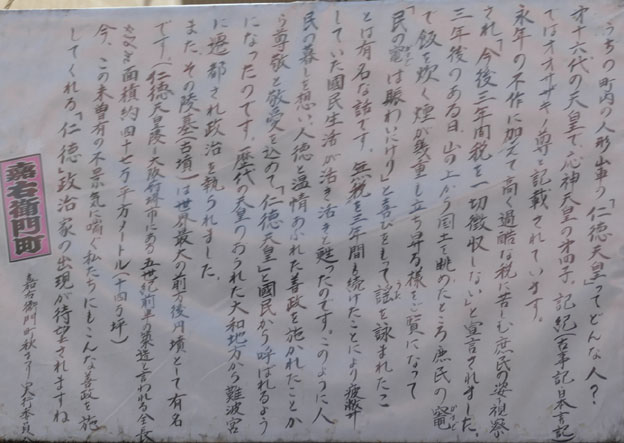 うちの町内の人形山車の「仁徳天皇」ってどんな人?
才十六代の天皇で、応神天皇の才四子、記紀(古事記日本書記
ではオオサザキノ尊と記載されています。
永年の不作に加えて高く過酷な税に苦しむ庶民の姿視察
され、「今後三年間税を一切徴収しない」と宣言されました。
三年後のある日、山の上から国土を眺めたところ庶民の竈
で飯を炊く煙が幾重も立ち昇る様をご覧になって
「民の竈は賑わいにけり」と喜びをもって謡を詠まれたこ
とは有名な話です。無税を三年間も続けたことにより疲弊
していた國民生活が活き活きと甦ったのです。このように人
民の暮しを想い、人徳と温情あふれた善政を施かれたことか
ら尊敬と敬愛を込めて「仁徳天皇」と國民から呼ばれるよう
になったのです。歴代の天皇のおられた大和地方から難波宮
に遷都され政治を執られました。
また、その陵墓(古墳)は世界最大の前方後円墳として有名
です。(仁徳天皇陵・大阪府堺市にある五世紀前半の築造と言われる全長
面積約四十七万平方メートル(十四万坪)
今、この未曽有の不景気に喘ぐ私たちにもこんな善政を施
してくれる「仁徳」政治家の出現が待望されますね
嘉右衛門町秋まつり実行委員
嘉右衛門町